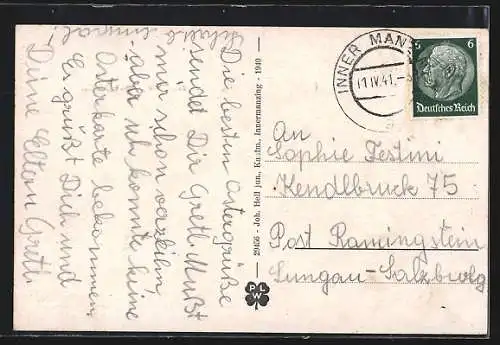 Die besten Ostergrüße
sendet Dir Gretl. Mußt
mir schon verzeihn,
aber ich konnte keine
Osterkarte bekommen.
Er grüßt Dich und
Deine Eltern Gretl.
Schreib einmal!
29456 - Joh. Hell jun., Kaufm., Innermanzing - 1940
PLW
INNER MAN
11.IV.41.-
6 6
Deutsches Reich
An
Sophie Testini
Kendlbruck 75
Post Ramingstein
Lungau-Salzburg